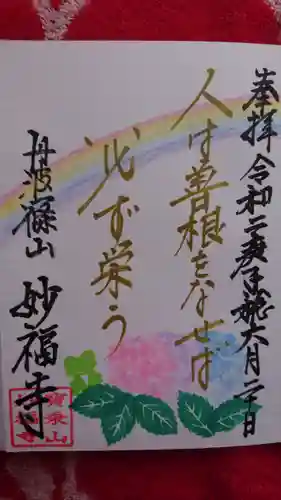 奉拝 令和二庚子姚六月二十日
人は善根をなせば
必ず栄う
丹波篠山 妙福寺